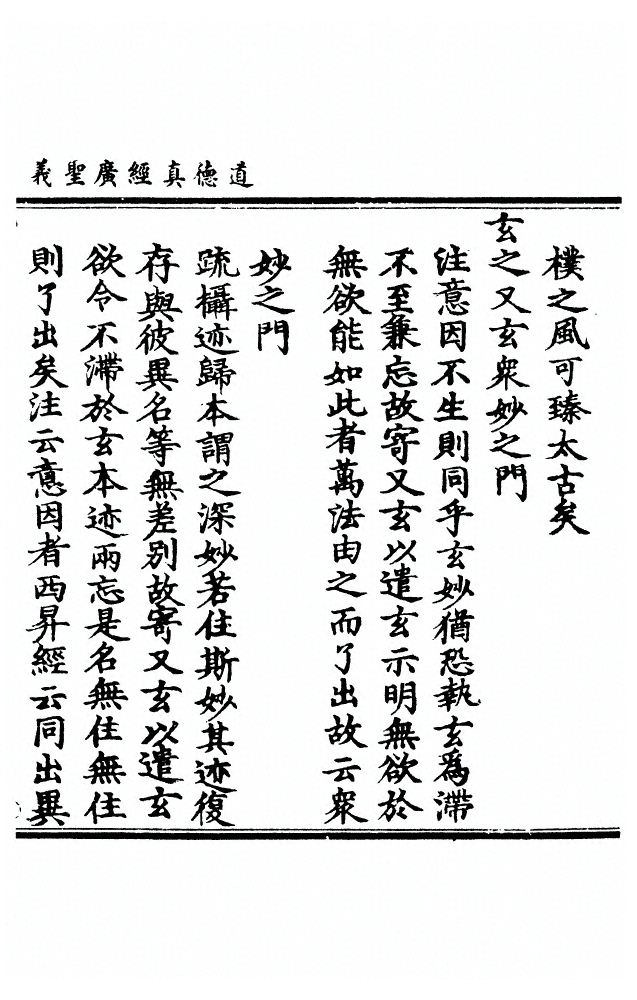 道德真經廣聖義
樸之風可臻太古矣
玄之又玄衆妙之門
注意因不生則同乎玄妙猶恐執玄為滯
不至兼忘故寄又玄以遣玄示明無欲於
無欲能如此者萬法由之而了出故云衆
妙之門
疏攝迹歸本謂之深妙若住斯妙其迹復
存與彼異名等無差別故寄又玄以遣玄
欲令不滯於玄本迹兩忘是名無住無住
則了出矣注云意因者西昇經云同出異